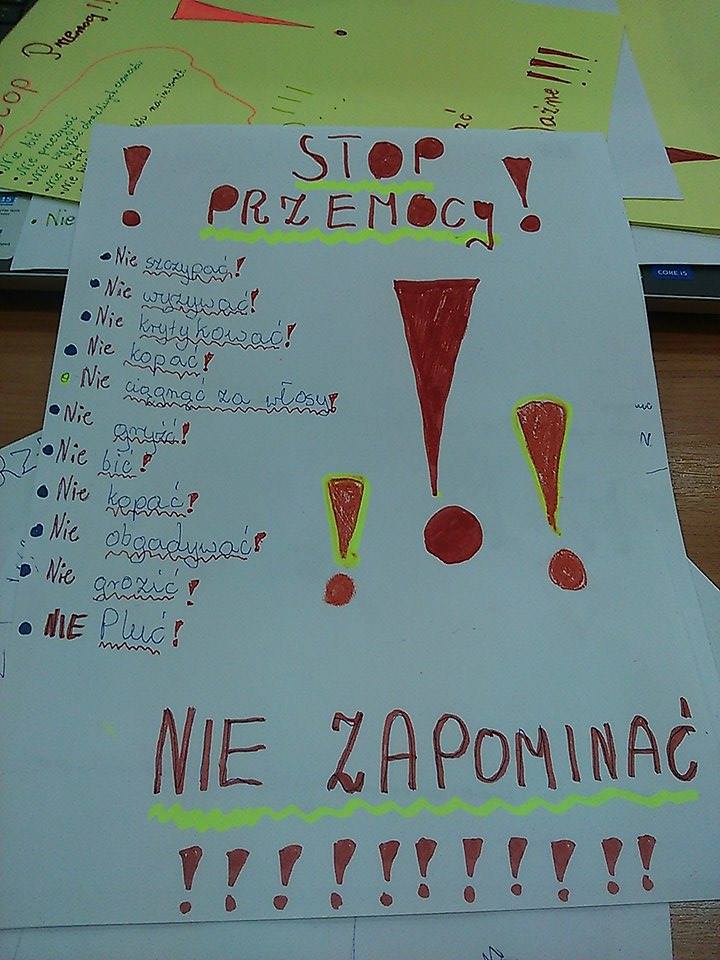 STOP
! PRZEMOCy !
• Nie szczypać!
• Nie wyzywać!
• Nie krytykować!
• Nie kopać!
• Nie ciągnąć za włosy!
• Nie gryźć!
• Nie bić!
• Nie kopać!
• Nie obgadywać!
• Nie grozić!
• NIE Pluć!
! ! !
NIE ZAPOMINAĆ
! ! ! ! ! ! ! ! ! ! !
Stop Przemocy!!
• Nie bić
• Nie przezywać
• Nie
CORE i5